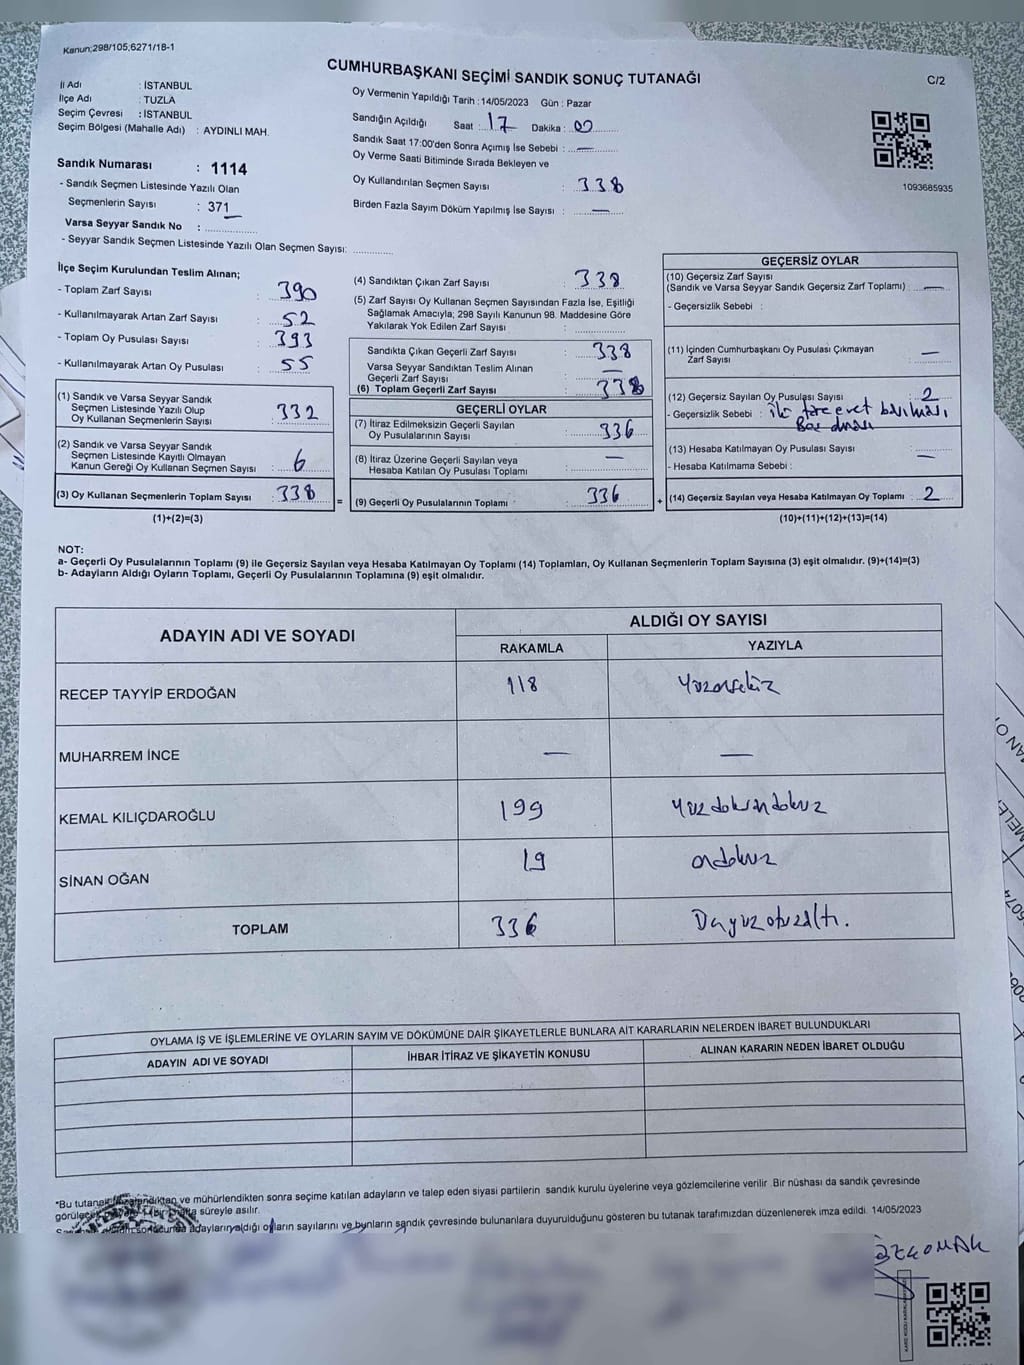 Kanun;298/105;6271/18-1
CUMHURBAŞKANI SEÇİMİ SANDIK SONUÇ TUTANAĞI
C/2
İl Adı : İSTANBUL
İlçe Adı : TUZLA
Seçim Çevresi : İSTANBUL
Seçim Bölgesi (Mahalle Adı) : AYDINLI MAH.
Sandık Numarası : 1114
- Sandık Seçmen Listesinde Yazılı Olan
Seçmenlerin Sayısı : 371
Varsa Seyyar Sandık No :
- Seyyar Sandık Seçmen Listesinde Yazılı Olan Seçmen Sayısı:
Oy Vermenin Yapıldığı Tarih : 14/05/2023 Gün : Pazar
Sandığın Açıldığı Saat : 17 Dakika : 00
Sandık Saat 17:00'den Sonra Açımış İse Sebebi : —
Oy Verme Saati Bitiminde Sırada Bekleyen ve
Oy Kullandırılan Seçmen Sayısı : 338
Birden Fazla Sayım Döküm Yapılmış İse Sayısı : —
1093685935
İlçe Seçim Kurulundan Teslim Alınan;
- Toplam Zarf Sayısı : 390
- Kullanılmayarak Artan Zarf Sayısı : 52
- Toplam Oy Pusulası Sayısı : 393
- Kullanılmayarak Artan Oy Pusulası : 55
(1) Sandık ve Varsa Seyyar Sandık
Seçmen Listesinde Yazılı Olup
Oy Kullanan Seçmenlerin Sayısı : 332
(2) Sandık ve Varsa Seyyar Sandık
Seçmen Listesinde Kayıtlı Olmayan
Kanun Gereği Oy Kullanan Seçmen Sayısı : 6
(3) Oy Kullanan Seçmenlerin Toplam Sayısı : 338
(1)+(2)=(3)
(4) Sandıktan Çıkan Zarf Sayısı : 338
(5) Zarf Sayısı Oy Kullanan Seçmen Sayısından Fazla İse, Eşitliği
Sağlamak Amacıyla; 298 Sayılı Kanunun 98. Maddesine Göre
Yakılarak Yok Edilen Zarf Sayısı :
Sandıkta Çıkan Geçerli Zarf Sayısı : 338
Varsa Seyyar Sandıktan Teslim Alınan
Geçerli Zarf Sayısı : —
(6) Toplam Geçerli Zarf Sayısı : 338
GEÇERLİ OYLAR
(7) İtiraz Edilmeksizin Geçerli Sayılan
Oy Pusulalarının Sayısı : 336
(8) İtiraz Üzerine Geçerli Sayılan veya
Hesaba Katılan Oy Pusulası Toplamı : —
= (9) Geçerli Oy Pusulalarının Toplamı : 336
GEÇERSİZ OYLAR
(10) Geçersiz Zarf Sayısı
(Sandık ve Varsa Seyyar Sandık Geçersiz Zarf Toplamı) : —
- Geçersizlik Sebebi :
(11) İçinden Cumhurbaşkanı Oy Pusulası Çıkmayan
Zarf Sayısı : —
(12) Geçersiz Sayılan Oy Pusulası Sayısı : 2
- Geçersizlik Sebebi : iki evet
(13) Hesaba Katılmayan Oy Pusulası Sayısı : —
- Hesaba Katılmama Sebebi :
+ (14) Geçersiz Sayılan veya Hesaba Katılmayan Oy Toplamı : 2
(10)+(11)+(12)+(13)=(14)
NOT:
a- Geçerli Oy Pusulalarının Toplamı (9) ile Geçersiz Sayılan veya Hesaba Katılmayan Oy Toplamı (14) Toplamları, Oy Kullanan Seçmenlerin Toplam Sayısına (3) eşit olmalıdır. (9)+(14)=(3)
b- Adayların Aldığı Oyların Toplamı, Geçerli Oy Pusulalarının Toplamına (9) eşit olmalıdır.
ADAYIN ADI VE SOYADI
ALDIĞI OY SAYISI
RAKAMLA YAZIYLA
RECEP TAYYİP ERDOĞAN 118 Yüzonsekiz
MUHARREM İNCE — —
KEMAL KILIÇDAROĞLU 199 Yüzdoksandokuz
SİNAN OĞAN 19 ondokuz
TOPLAM 336 Üçyüzotuzaltı.
OYLAMA İŞ VE İŞLEMLERİNE VE OYLARIN SAYIM VE DÖKÜMÜNE DAİR ŞİKAYETLERLE BUNLARA AİT KARARLARIN NELERDEN İBARET BULUNDUKLARI
ADAYIN ADI VE SOYADI İHBAR İTİRAZ VE ŞİKAYETİN KONUSU ALINAN KARARIN NEDEN İBARET OLDUĞU
*Bu tutanek ve mühürlendikten sonra seçime katılan adayların ve talep eden siyasi partilerin sandık kurulu üyelerine veya gözlemcilerine verilir. Bir nüshası da sandık çevresinde
süreyle asılır.
adayların aldığı oyların sayılarını ve bunların sandık çevresinde bulunanlara duyurulduğunu gösteren bu tutanak tarafımızdan düzenlenerek imza edildi. 14/05/2023